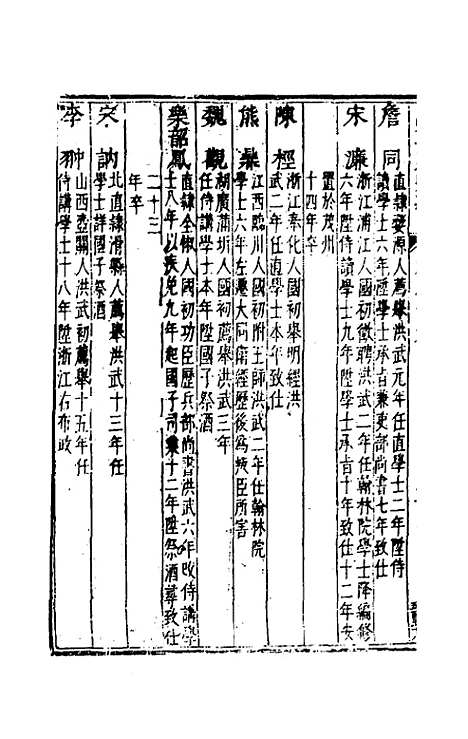 詹同
直隸婺源人薦舉洪武元年任直學士二年陞侍
讀學士六年陞學士承旨兼吏部尚書七年致仕
宋濂
浙江浦江人國初徵聘洪武二年任翰林院學士降編修
六年陞侍讀學士九年陞學士承旨十年致仕十二年安
置於茂州
十四年卒
陳桱
浙江奉化人國初舉明經洪
武二年任直學士本年致仕
熊鼎
江西臨川人國初附王師洪武二年任翰林院
學士六年左遷大同衛經歷後為賊臣所害
魏觀
湖廣蒲圻人國初薦舉洪武三年
任侍講學士本年陞國子祭酒
樂韶鳳
直隸全椒人國初功臣歷兵部尚書洪武六年改侍講學
士八年以疾免九年起國子司業十二年陞祭酒尋致仕
二十三
年卒
宋訥
北直隸滑縣人薦舉洪武十三年任
學士詳國子祭酒
李翀
山西壺關人洪武初薦舉十五年任
侍講學士十八年陞浙江右布政